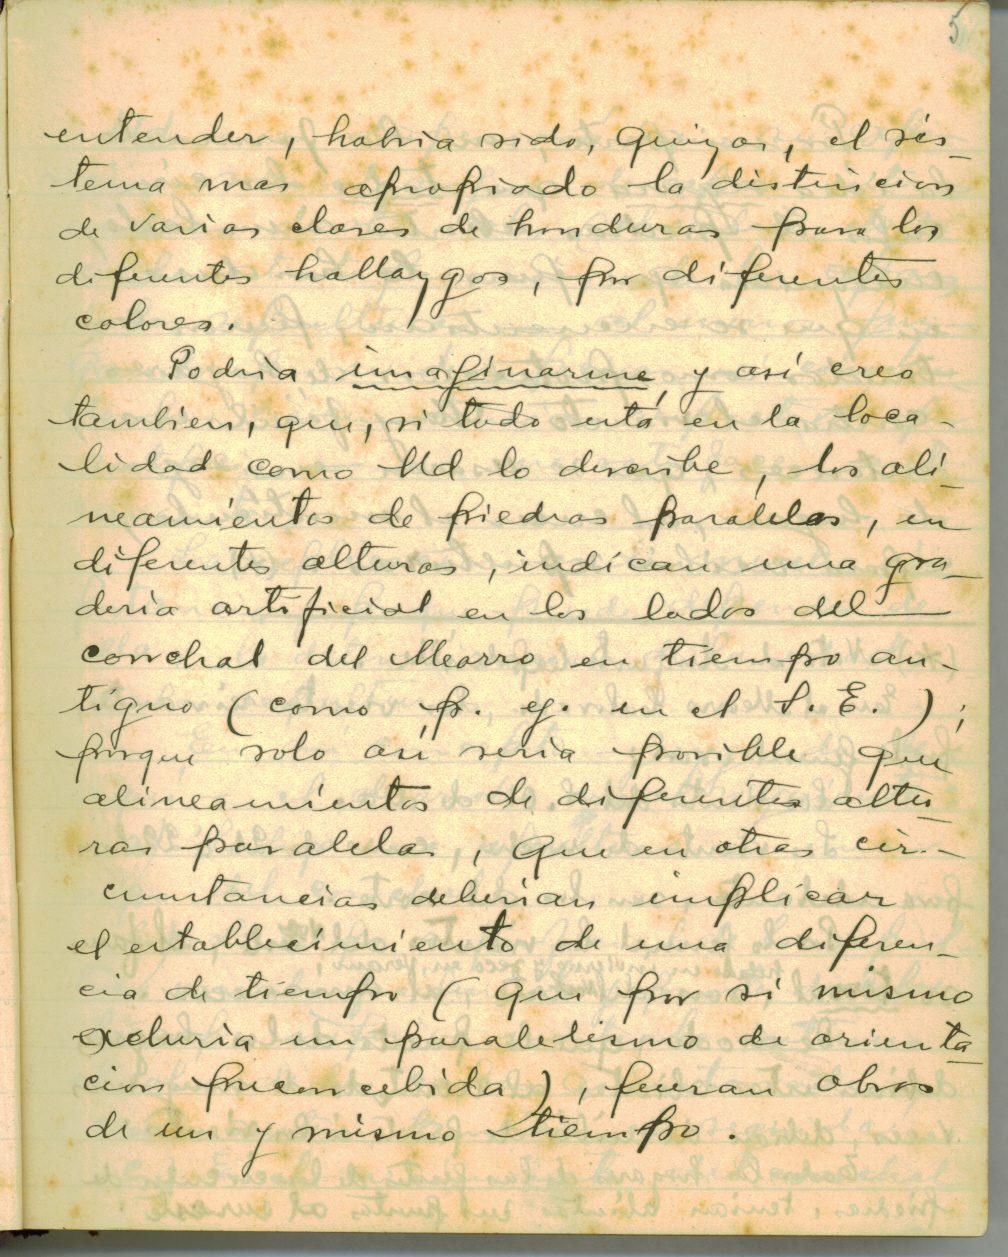 5
entender, habria sido, quizas, el sis-
tema mas apropiado la distincion
de varias clases de honduras para los
diferentes hallazgos, por diferentes
colores.
Podria imaginarme, y asi creo
tambien, que, si todo está en la loca-
lidad como Ud lo describe, los ali-
neamientos de piedras paralelas, en
diferentes alturas, indican una gra-
deria artificial en los lados del
conchal del Morro en tiempo an-
tiguo (como p. ej. en el S. E.);
porque solo asi seria posible que
alineamientos de diferentes altu-
ras paralelas, que en otras cir-
cunstancias deberian implicar
el establecimiento de una diferen-
cia de tiempo (que por si mismo
excluria un paralelismo de orienta-
cion preconcebida), fueran obras
de un y mismo tiempo.